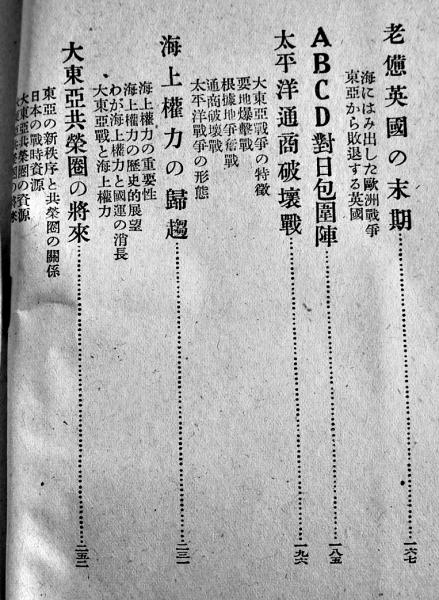 老憊英國の末期……一六七
海にはみ出した歐洲戰爭
東亞から敗退する英國
ABCD對日包圍陣……一八五
太平洋通商破壞戰……一九六
大東亞戰爭の特徵
要地爆擊戰
根據地爭奪戰
通商破壞戰
太平洋戰爭の形態
海上權力の歸趨……二三一
海上權力の重要性
海上權力の歷史的展望
わが海上權力と國運の消長
大東亞戰と海上權力
大東亞共榮圈の將來……二五二
東亞の新秩序と共榮圈の關係
日本の戰時資源
大東亞共榮圈の資源